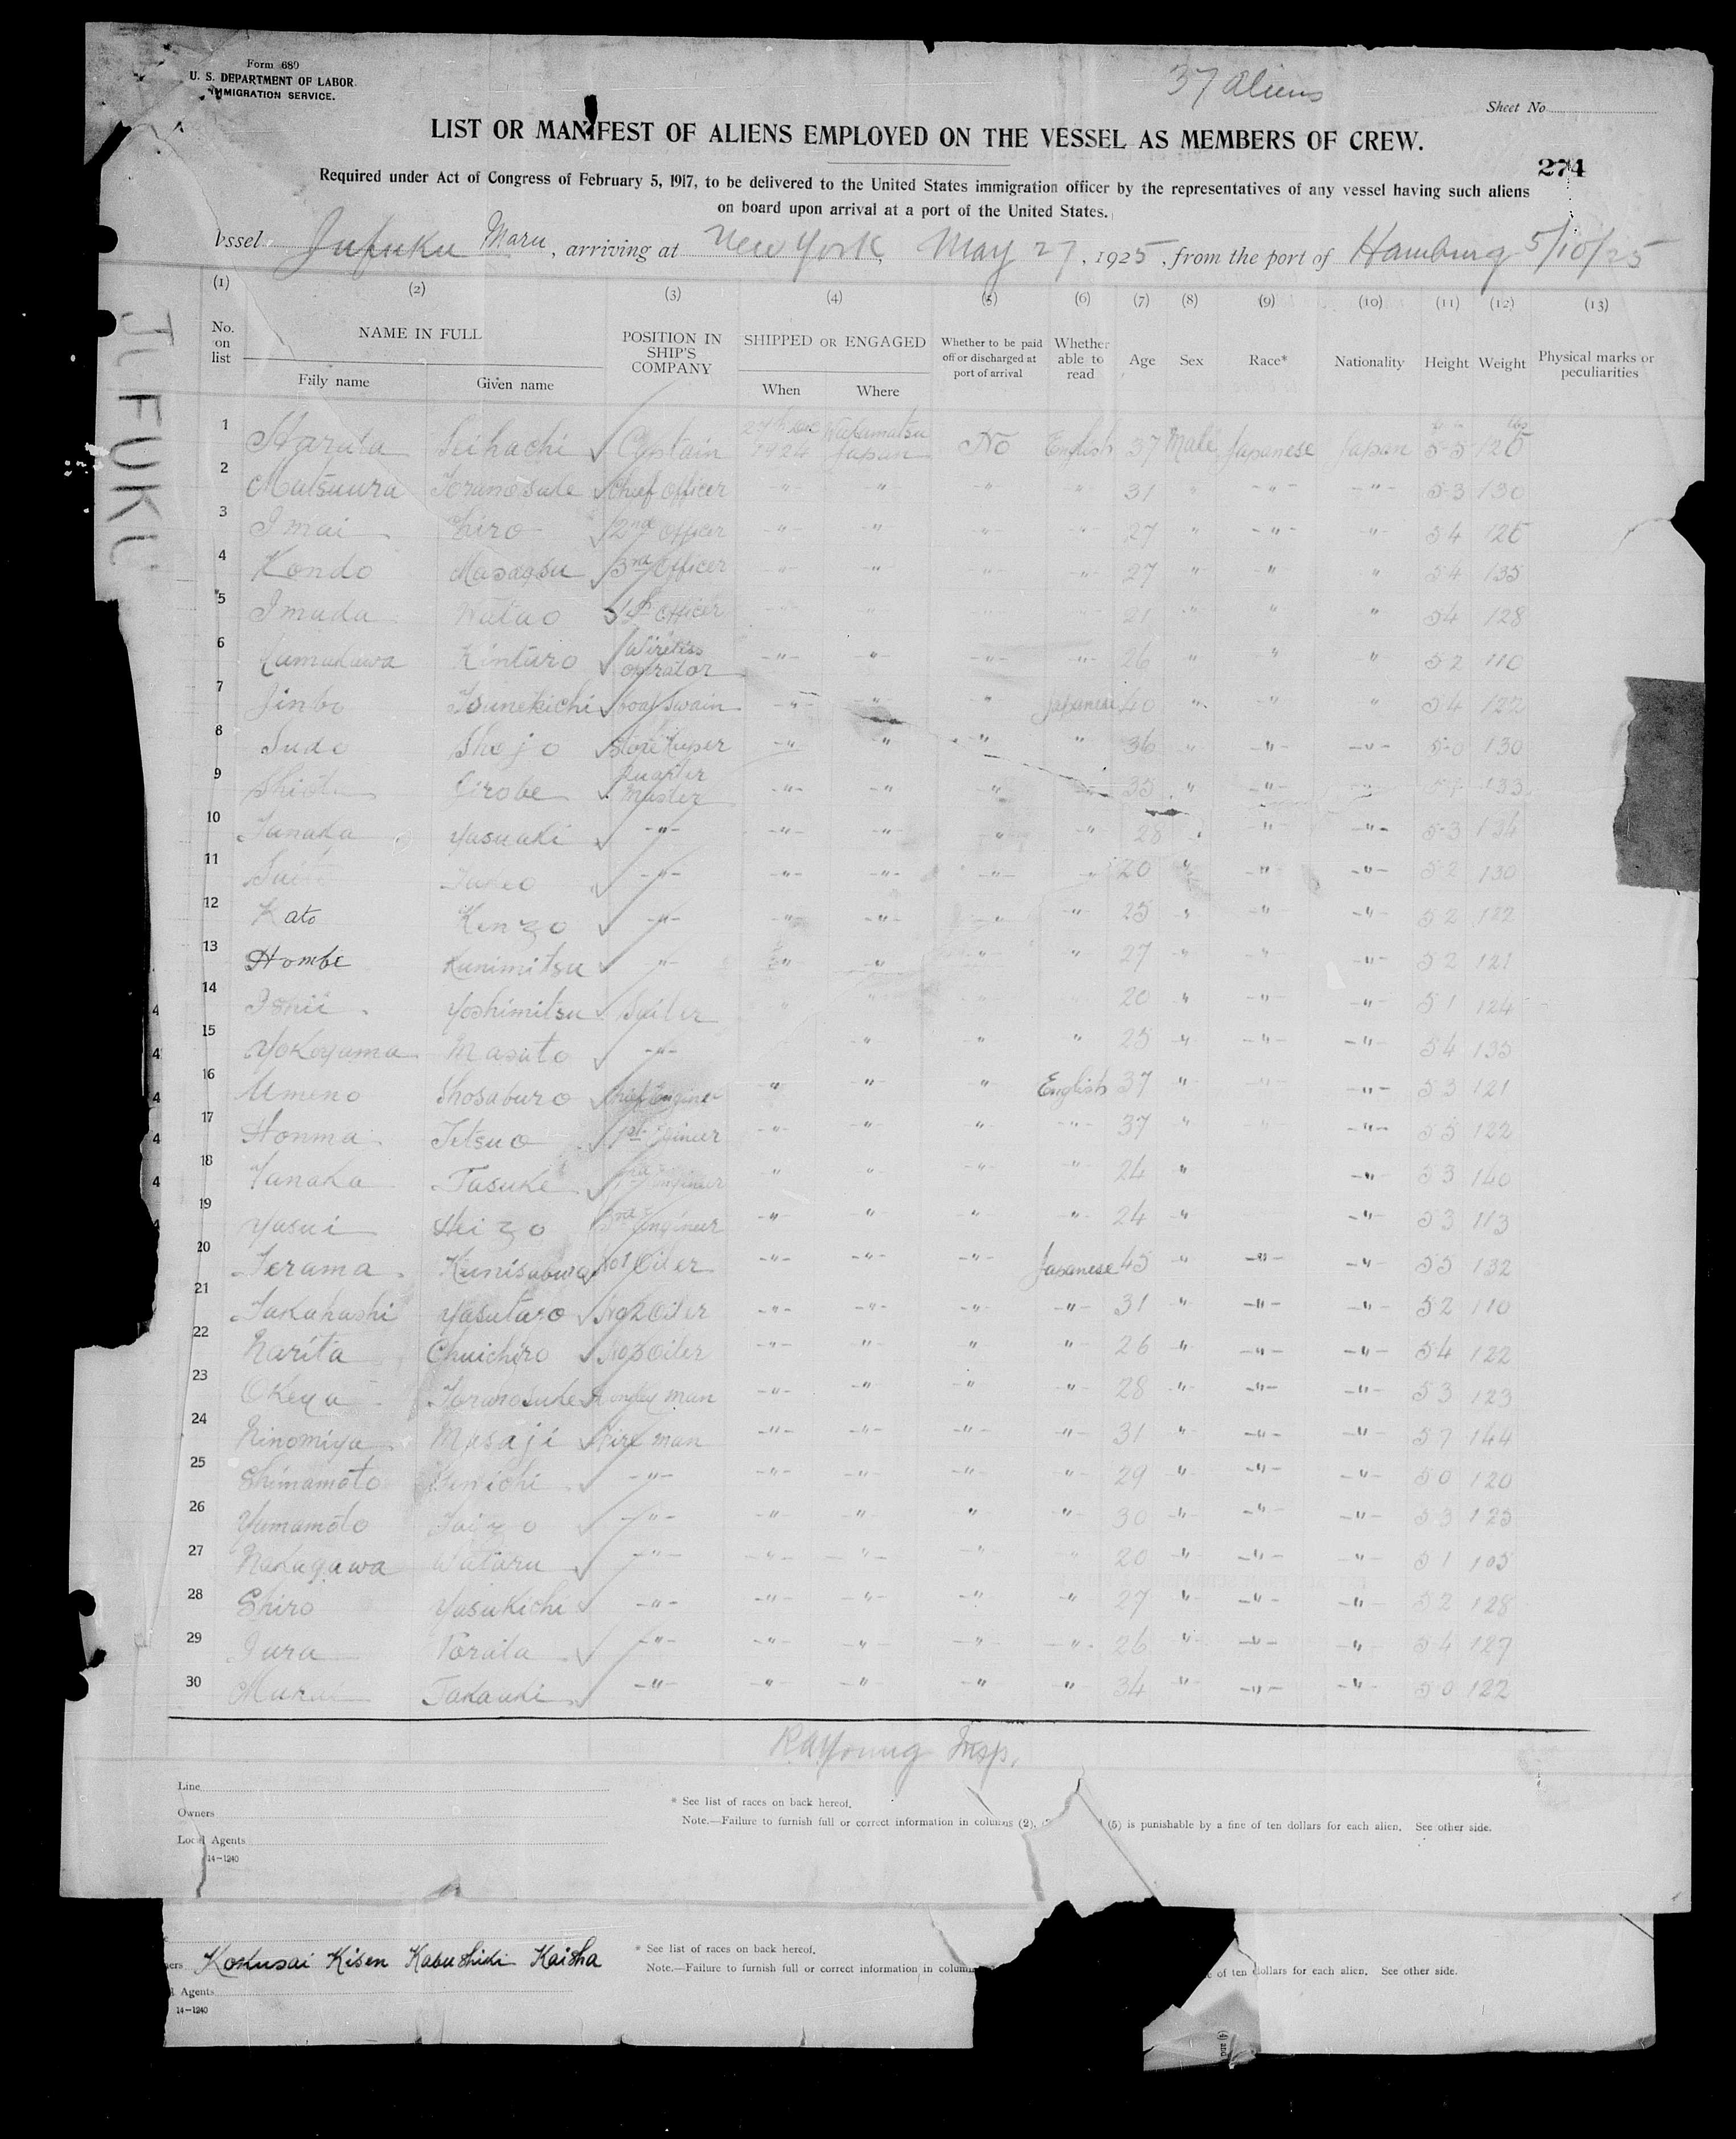 Form 689
U. S. DEPARTMENT OF LABOR
IMMIGRATION SERVICE.
37 aliens
Sheet No
LIST OR MANIFEST OF ALIENS EMPLOYED ON THE VESSEL AS MEMBERS OF CREW.
274
Required under Act of Congress of February 5, 1917, to be delivered to the United States immigration officer by the representatives of any vessel having such aliens
on board upon arrival at a port of the United States.
Vssel Jufuku Maru, arriving at New York, May 27, 1925, from the port of Hamburg 5/10/25
JUFUKU
(1) (2) (3) (4) (5) (6) (7) (8) (9) (10) (11) (12) (13)
No. on list NAME IN FULL Family name Given name POSITION IN SHIP'S COMPANY SHIPPED OR ENGAGED When Where Whether to be paid off or discharged at port of arrival Whether able to read Age Sex Race* Nationality Height Weight Physical marks or peculiarities
1 Haruta Seihachi Captain 1924 Wakamatsu Japan No English 37 Male Japanese Japan 5-5 125
2 Matsuura Toranosuke Chief Officer -"- -"- -"- " 31 " -"- -"- 5-3 130
3 Imai 2nd Officer -"- -"- -"- -"- 27 " -"- -"- 5 4
4 Kondo 3rd Officer -"- -"- -"- -"- 27 " " " 5 4 135
5 Imada Watao Officer 21 " " " 5 4 128
6 Kintaro Wireless operator -"- -"- -"- -"- 26 " " " 5 2 110
7 Jinbo Tsunekichi Boat Swain -"- -"- " Japanese 40 " " " 5 4 122
8 Sudo Shojo Store Keeper -"- " " " 36 " -"- -"- 5-0 130
9 Quarter Master -"- -"- " 35 " -"- 133
10 Tanaka Yasuaki -"- -"- -"- -"- -"- 28 " -"- 5-3 134
11 -"- -"- -"- -"- " 20 " -"- -"- 5 2 130
12 Kato Kenzo -"- -"- -"- " -"- 25 " -"- -"- 5 2 122
13 Hombe Kunimitsu -"- " " " " 27 " -"- -"- 5 2 121
14 Ishii Yoshimitsu Sailer 20 " -"- -"- 5 1 124
15 Yokoyama Masato -"- " " " 25 " -"- -"- 5 4 135
16 Umeno Shosaburo Chief Engineer " " " English 37 " -"- 5 3 121
17 Honma Tetsuo 1st Engineer -"- " " -"- 37 " -"- 5 5 122
18 Tanaka Tasuke Engineer " " -"- " 24 " -"- 5 3 140
19 Yasui Heizo 3rd Engineer -"- " " " 24 " -"- 5 3 113
20 Terama Kunisaburo No1 Oiler -"- -"- -"- Japanese 45 " -"- -"- 5 5 132
21 Takahashi Yasutaro No2 Oiler -"- -"- -"- -"- 31 " -"- -"- 5 2 110
22 Narita Chuichiro No3 Oiler -"- " " " 26 " -"- -"- 5 4 122
23 Okeya Toranosuke Donkey man -"- " " " 28 " -"- -"- 5 3 123
24 Ninomiya Masaji Fire man -"- -"- -"- -"- 31 " -"- -"- 5 7 144
25 Shimamoto -"- -"- -"- -"- -"- 29 " -"- -"- 5 0 120
26 Yamamoto Taizo -"- -"- " " " 30 " -"- -"- 5 3 125
27 Nakagawa Wataru -"- -"- -"- -"- " 20 " -"- -"- 5 1 105
28 Shiro Yasukichi -"- -"- -"- -"- " 27 " -"- -"- 5 2 128
29 -"- -"- -"- -"- -"- 26 " -"- " 5 4 127
30 Takauki -"- " " " " 34 " -"- -"- 5 0 122
R.A. Young Insp.
Line
Owners
Local Agents
14—1240
* See list of races on back hereof.
Note.—Failure to furnish full or correct information in columns (2), (5) is punishable by a fine of ten dollars for each alien. See other side.
Kokusai Kisen Kabushiki Kaisha
Agents
14—1240
* See list of races on back hereof.
Note.—Failure to furnish full or correct information in of ten dollars for each alien. See other side.